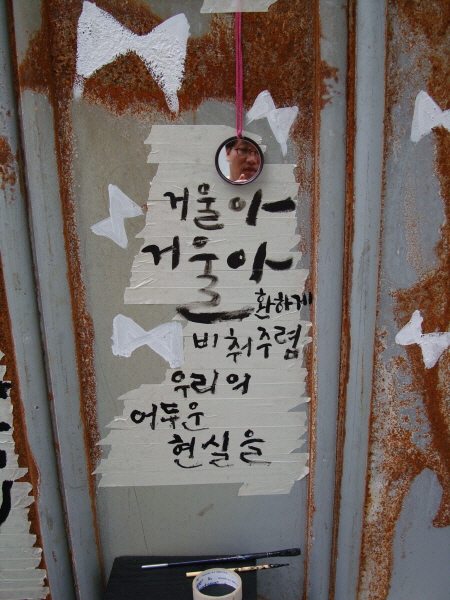 거울아
거울아
환하게
비춰주렴
우리의
어두운
현실을